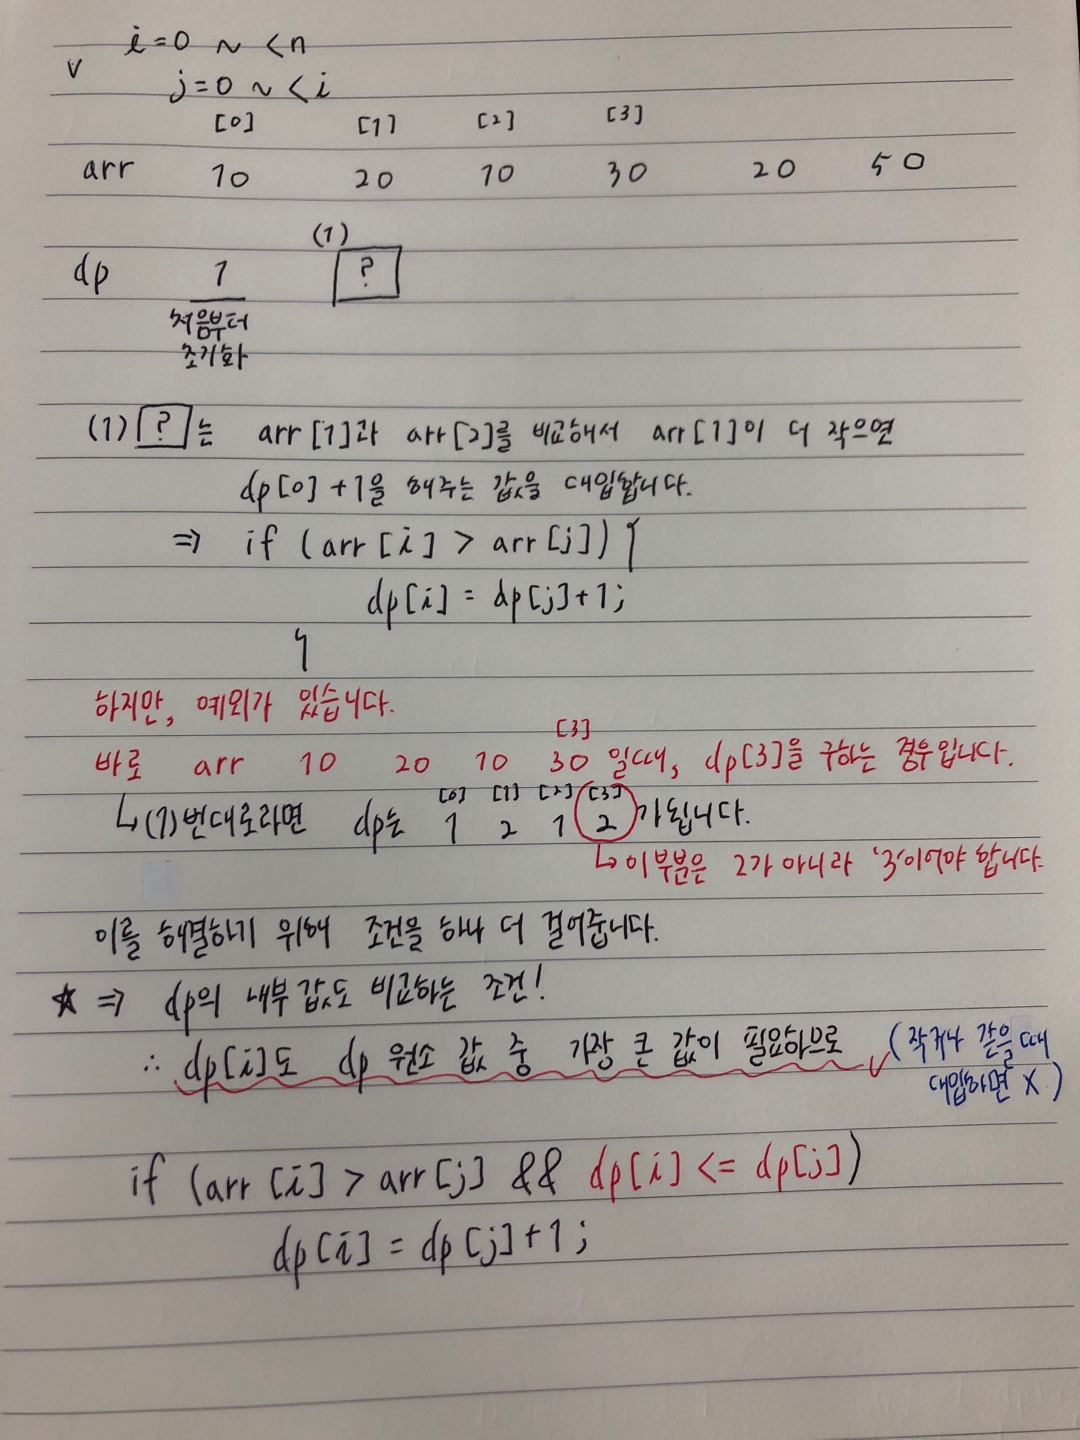 i=0 ~ <n
v
j=0 ~ <i
[0] [1] [2] [3]
arr 10 20 10 30 20 50
(1)
dp 1 ?
처음부터
초기화
(1) ? 는 arr[1]과 arr[2]를 비교해서 arr[1]이 더 작으면
dp[0]+1을 해주는 값을 대입합니다.
⇒ if (arr[i] > arr[j]) {
dp[i] = dp[j]+1;
}
하지만, 예외가 있습니다.
[3]
바로 arr 10 20 10 30 일때, dp[3]을 구하는 경우입니다.
[0] [1] [2] [3]
↳(1)번대로라면 dp는 1 2 1 2 가 됩니다.
↳이 부분은 2가 아니라 '3'이어야 합니다.
이를 해결하기 위해 조건을 하나 더 걸어줍니다.
☆ ⇒ dp의 내부 값도 비교하는 조건!
∴ dp[i]도 dp 원소 값 중 가장 큰 값이 필요하므로 (작거나 같을 때
대입하면 X)
if (arr[i] > arr[j] && dp[i] <= dp[j])
dp[i] = dp[j]+1;